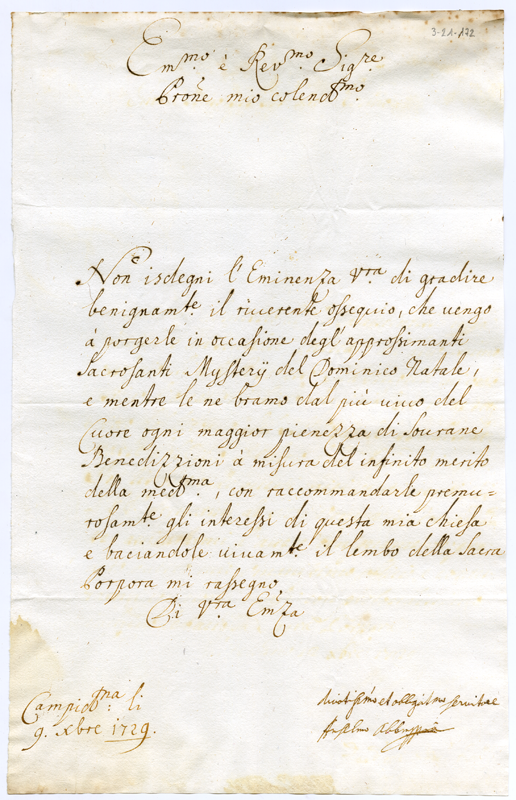 3-21-172
Em.mo è Rev.mo Sig.re
Prone mio colend.mo
Non isdegni l'Eminenza V.ra di gradire
benignam.te il riverente ossequio, che vengo
à porgerle in occasione degl'approssimanti
Sacrosanti Mysterÿ del Dominico Natale,
e mentre le ne bramo dal più vivo del
Cuore ogni maggior pienezza di Sourane
Benedizzioni à misura del infinito merito
della med.ma, con raccommandarle premu=
rosam.te gli interessi di questa mia chiesa
e baciandole vivam.te il lembo della Sacra
Porpora mi rassegno
Di V.ra Em.za
Campid.na li
9. Xbre 1729.
et obblig.mo
Anselmo Abb